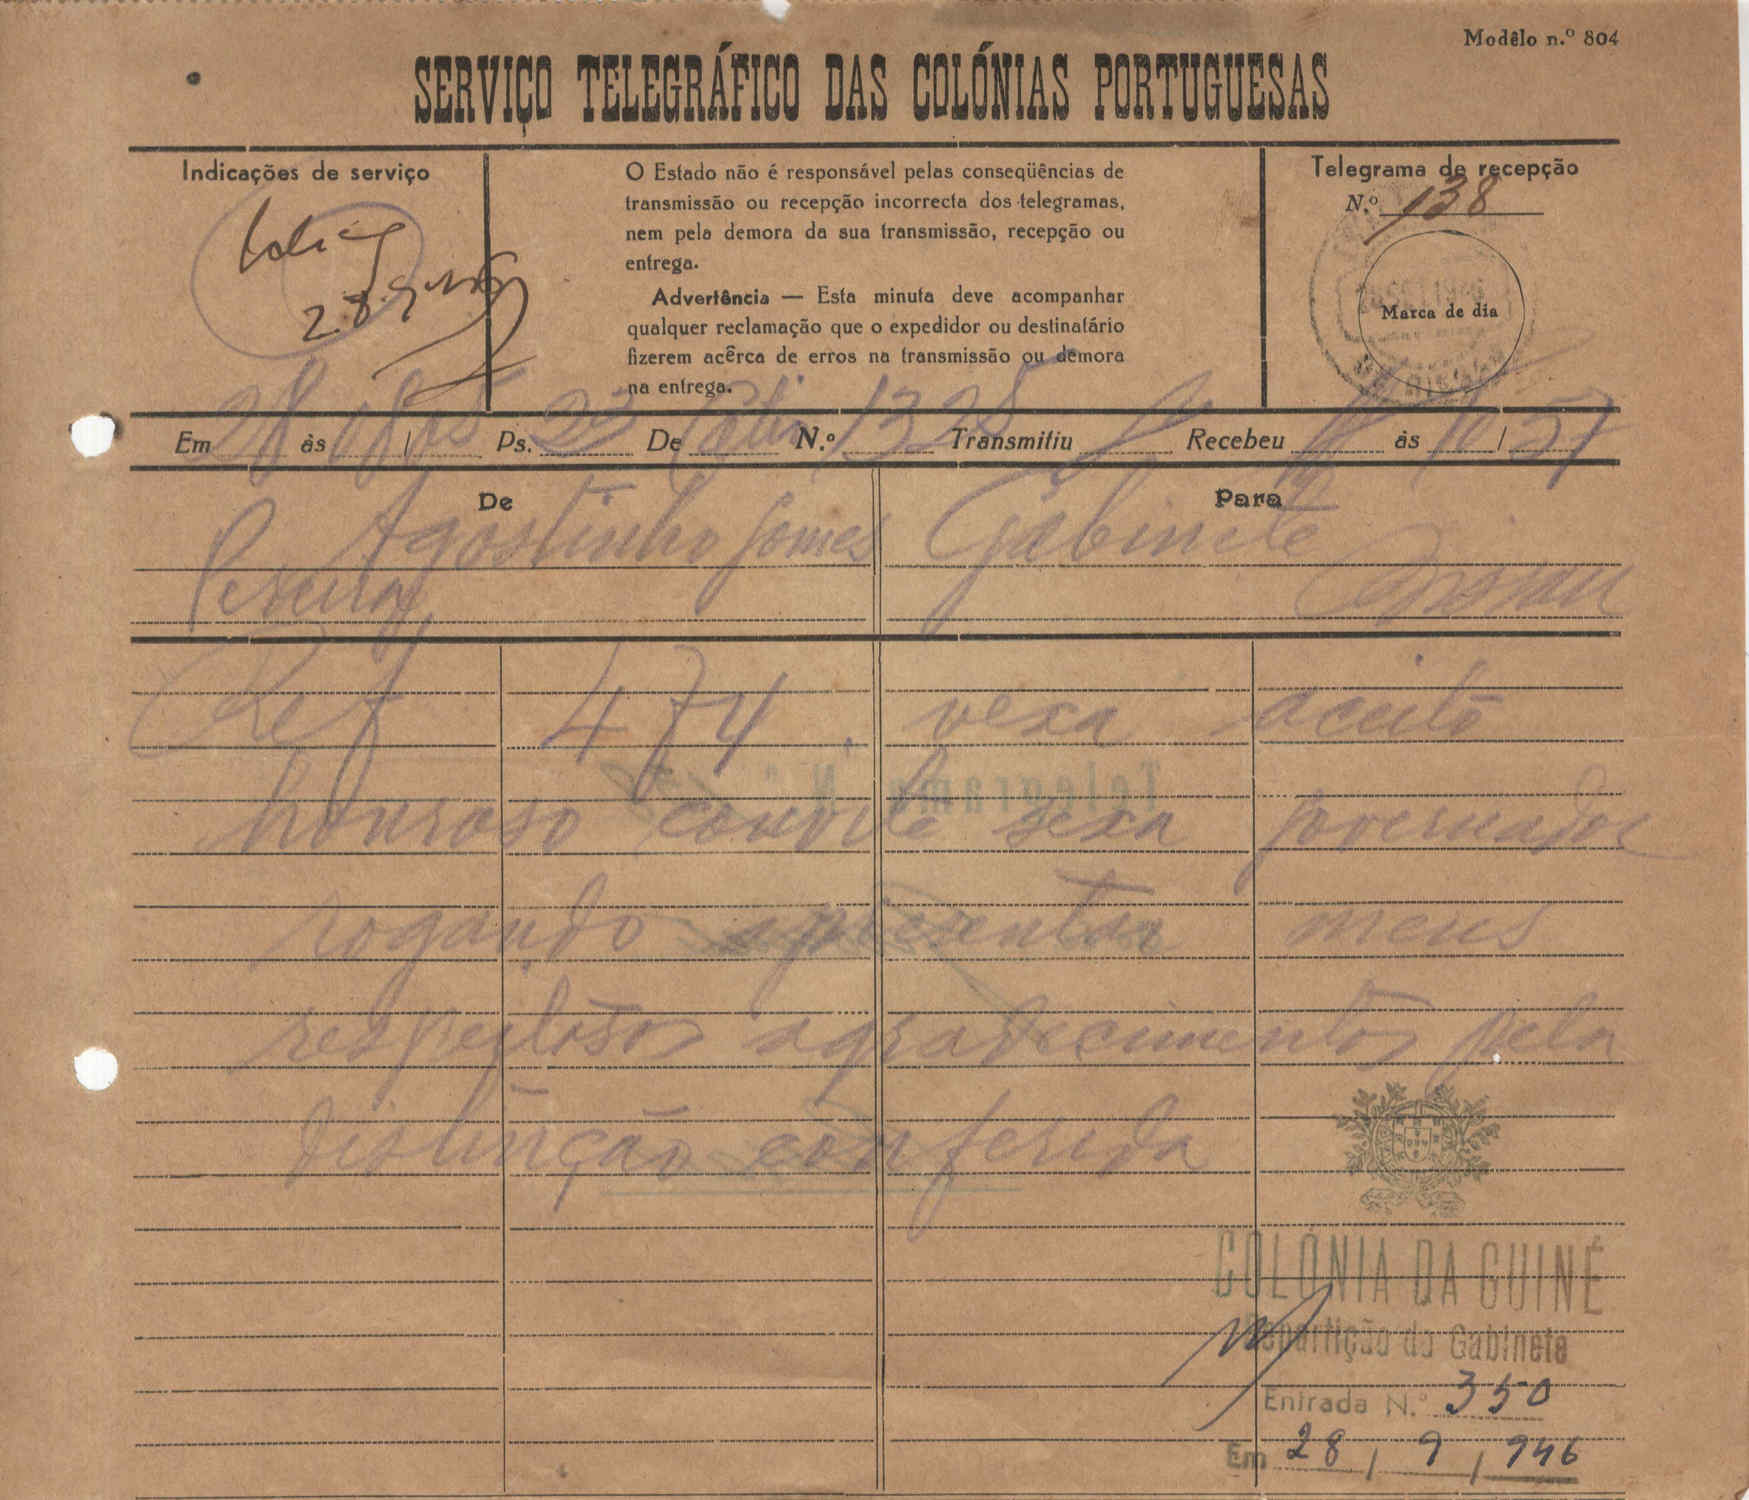 Modêlo n.º 804
SERVIÇO TELEGRÁFICO DAS COLÓNIAS PORTUGUESAS
Indicações de serviço
28.9.
O Estado não é responsável pelas conseqüências de
transmissão ou recepção incorrecta dos telegramas,
nem pela demora da sua transmissão, recepção ou
entrega.
Advertência — Esta minuta deve acompanhar
qualquer reclamação que o expedidor ou destinatário
fizerem acêrca de erros na transmissão ou demora
na entrega.
Telegrama de recepção
N.º 138
Marca de dia
Em 28 às / Ps. 23 De N.º 1325 Transmitiu Recebeu às 10 / 57
De
Agostinho Gomes
Pereira
Para
Gabinete
Bissau
Ref 474. vexa aceito
honroso convite sexa governador
rogando apresentar meus
respeitosos agradecimentos pela
distinção conferida
Telegrama N.º
COLÓNIA DA GUINÉ
Repartição do Gabinete
Entrada N.º 350
Em 28 / 9 / 946